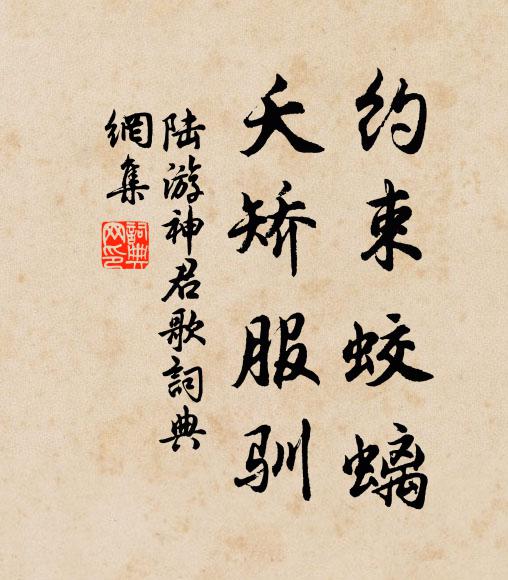 约束蛟螭
夭矫服驯
陆游神君歌词典
網集
詞典
网印